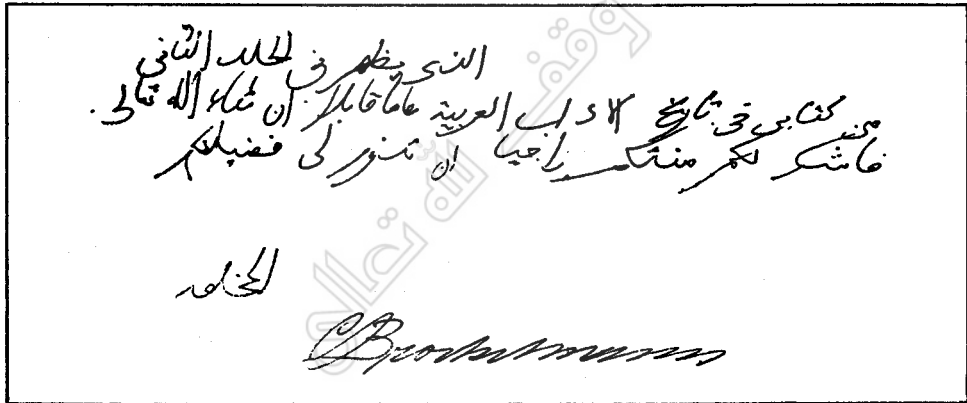 الذي يظهر في المجلد الثاني
من كتابي في تاريخ الآداب العربية عاما قابلا ان شاء الله تعالى.
فاشكر لكم منتكم راجيا ان لى فضيلتكم
المخلص
C Brockelmann
وقفية الله تعالى